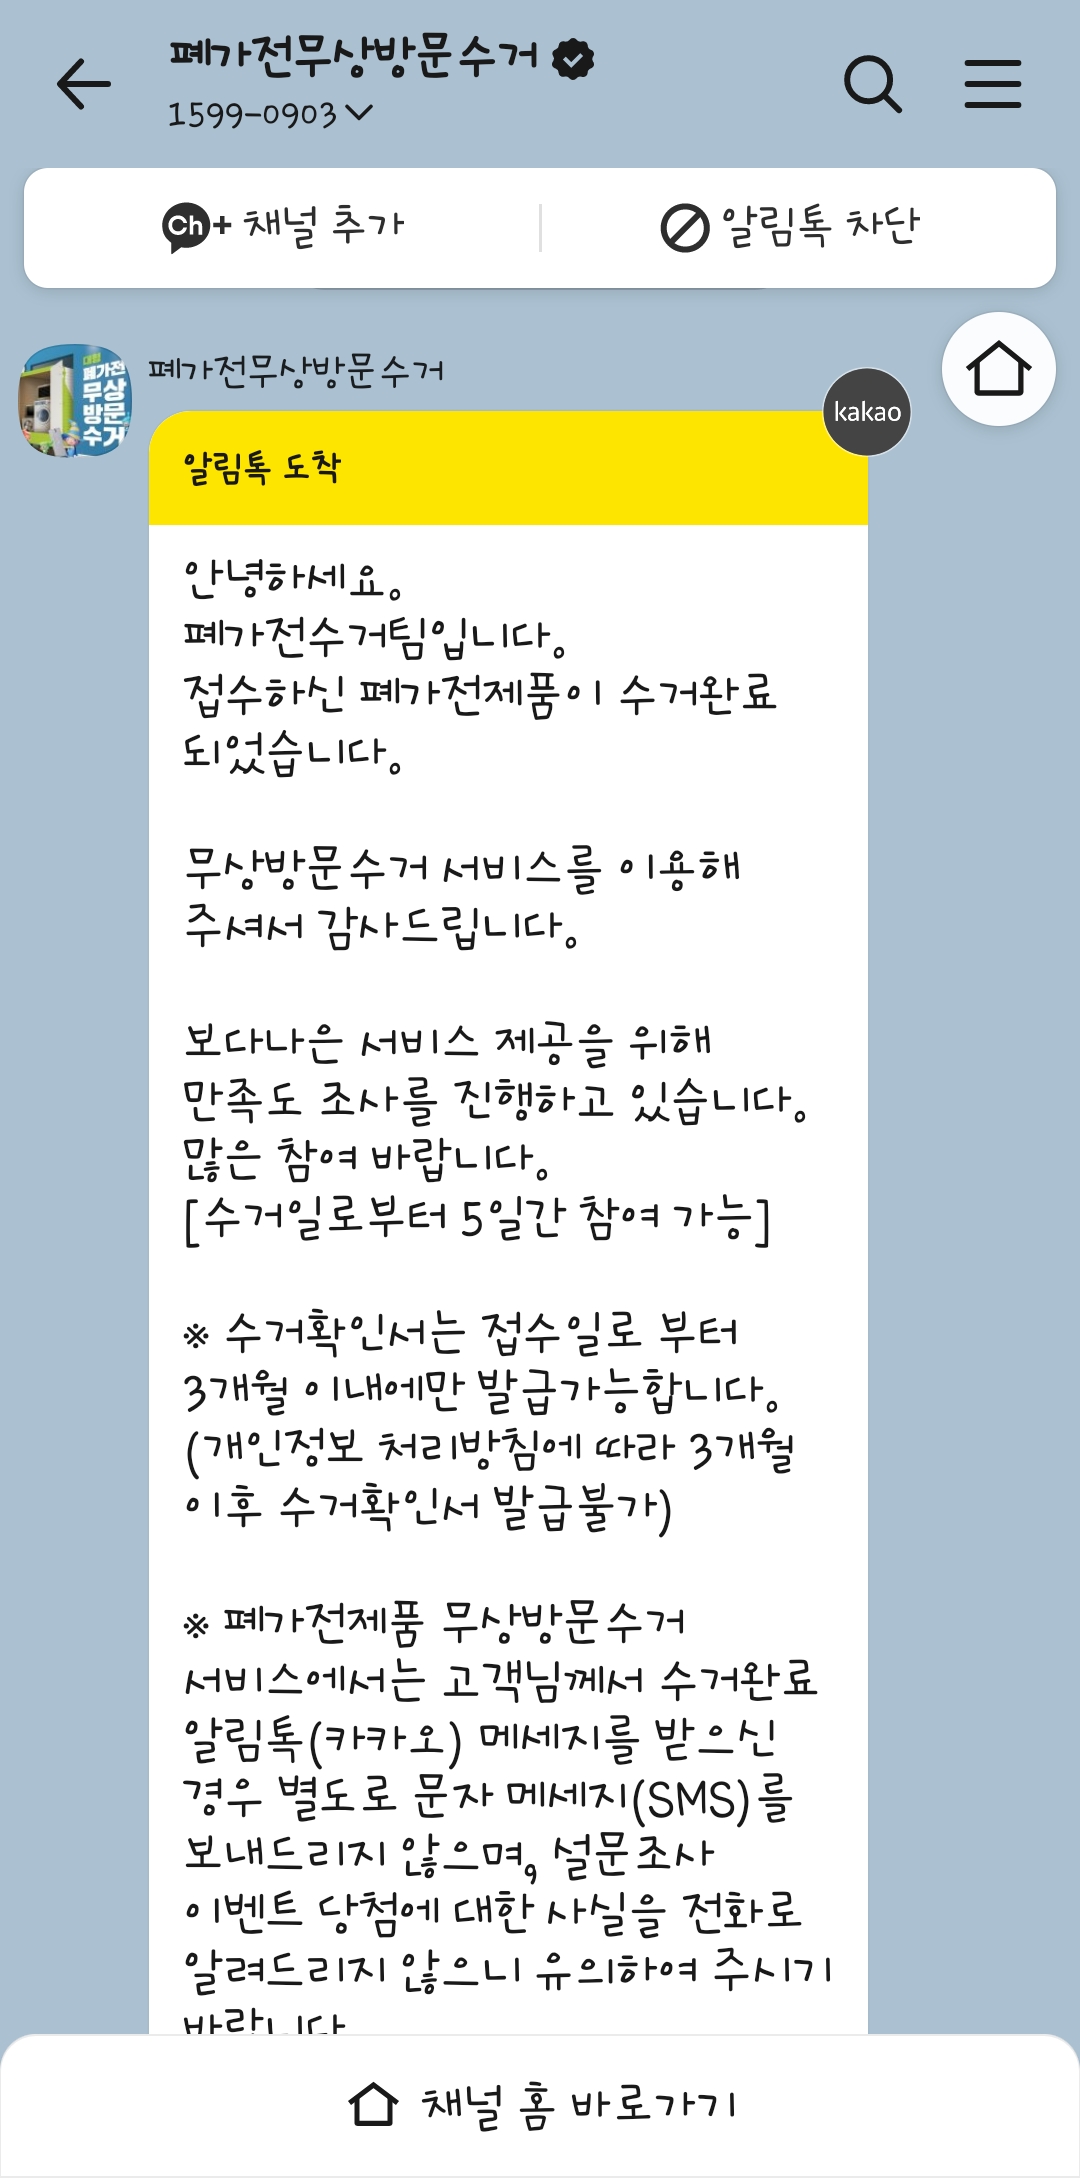 폐가전무상방문수거
1599-0903
Ch+ 채널 추가
알림톡 차단
대형
폐가전
무상
방문
수거
폐가전무상방문수거
kakao
알림톡 도착
안녕하세요.
폐가전수거팀입니다.
접수하신 폐가전제품이 수거완료
되었습니다.
무상방문수거 서비스를 이용해
주셔서 감사드립니다.
보다나은 서비스 제공을 위해
만족도 조사를 진행하고 있습니다.
많은 참여 바랍니다.
[수거일로부터 5일간 참여 가능]
※ 수거확인서는 접수일로 부터
3개월 이내에만 발급가능합니다.
(개인정보 처리방침에 따라 3개월
이후 수거확인서 발급불가)
※ 폐가전제품 무상방문수거
서비스에서는 고객님께서 수거완료
알림톡(카카오) 메세지를 받으신
경우 별도로 문자 메세지(SMS)를
보내드리지 않으며, 설문조사
이벤트 당첨에 대한 사실을 전화로
알려드리지 않으니 유의하여 주시기
바랍니다
채널 홈 바로가기